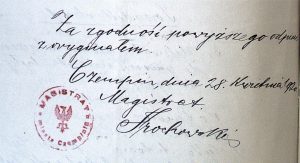 Za zgodność powyższego odpisu
z oryginałem.
Czempiń, dnia 28. Kwietnia
Magistrat
MAGISTRAT
miasta Czempinia